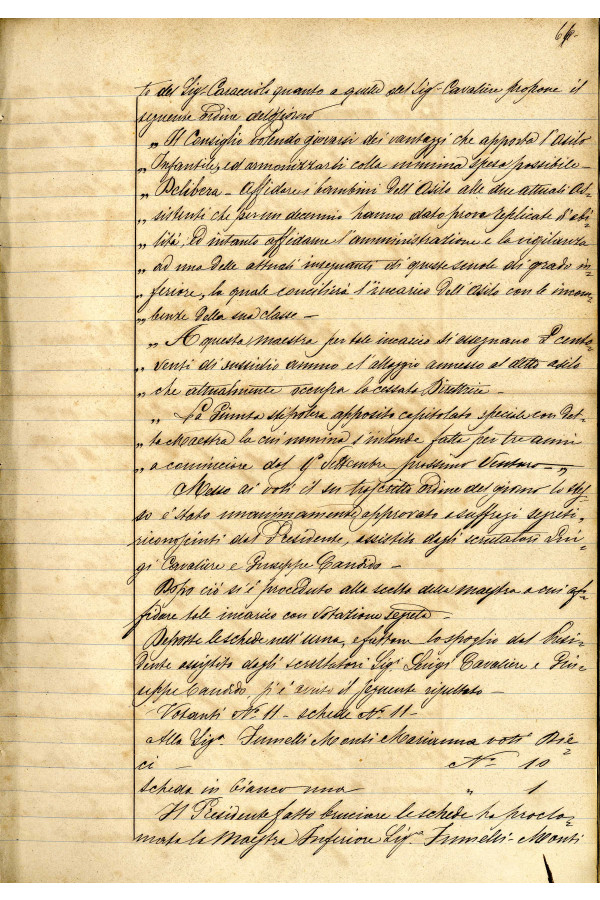 66.
to del Sig. Caracciolo quanto a quella del Sig. Cavaliere propone il
seguente ordine del giorno
„ Il Consiglio volendo giovarsi dei vantaggi che apporta l'Asilo
„ Infantile, ed armonizzarli colla minima spesa possibile –
„ Delibera – Affidare i bambini dell'Asilo alle due attuali As=
„ sistenti che per un decennio hanno dato prova replicate d'abi=
„ lità, ed intanto affidarne l'amministrazione e la vigilanza
„ ad una delle attuali insegnanti di queste scuole di grado in=
„ feriore, la quale concilierà l'incarico dell'Asilo con le incom=
„ benze della sua classe –
„ A questa maestra per tale incarico si assegnano £ cento
„ venti di sussidio annuo e l'alloggio annesso al detto asilo
„ che attualmente occupa la cessata Direttrice –
„ La Giunta stipolerà apposito capitolato speciale con det=
„ ta Maestra la cui nomina s'intende fatta per tre anni
„ a cominciare dal 1° Settembre prossimo venturo – „
Messo ai voti il su trascritto ordine del giorno lo stes=
so è stato unanimamente approvato a suffragi segreti,
riconosciuti dal Presidente, assistito dagli scrutatori Lui=
gi Cavaliere e Giuseppe Candido –
Dopo ciò si è proceduto alla scelta della maestra a cui af=
fidare tale incarico con votazione segreta –
Deposte le schede nell'urna, e fattone lo spoglio dal Presi=
dente assistito dagli scrutatori Sigi Luigi Cavaliere e Giu=
seppe Candido, si è avuto il seguente risultato –
Votanti N° 11 – schede N° 11 –
Alla Sigra Monti Marianna voti Die=
ci – N° 10
scheda in bianco una „ 1
Il Presidente fatto bruciare le schede ha procla=
mata la Maestra Inferiore Sigra Monti